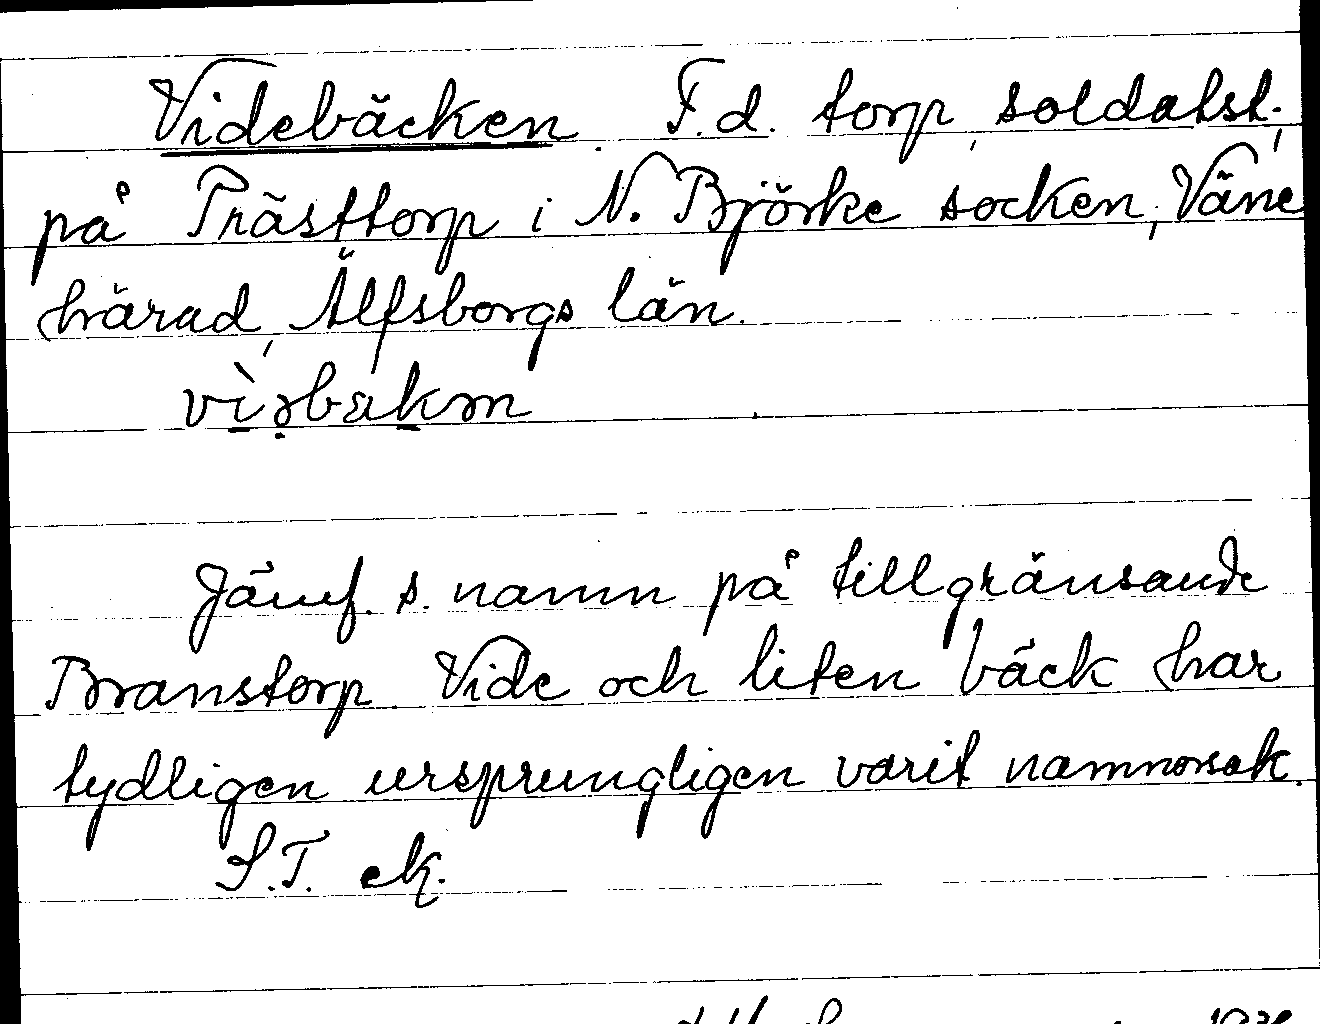 Videbäcken. F.d. torp, soldatst.,
på Prästtorp i N. Björke socken, Väne
härad, Älfsborgs län.
Jämf. s. namn på tillgränsande
Branstorp. Vide och liten bäck har
tydligen ursprungligen varit namnorsak.
S.T. ek.